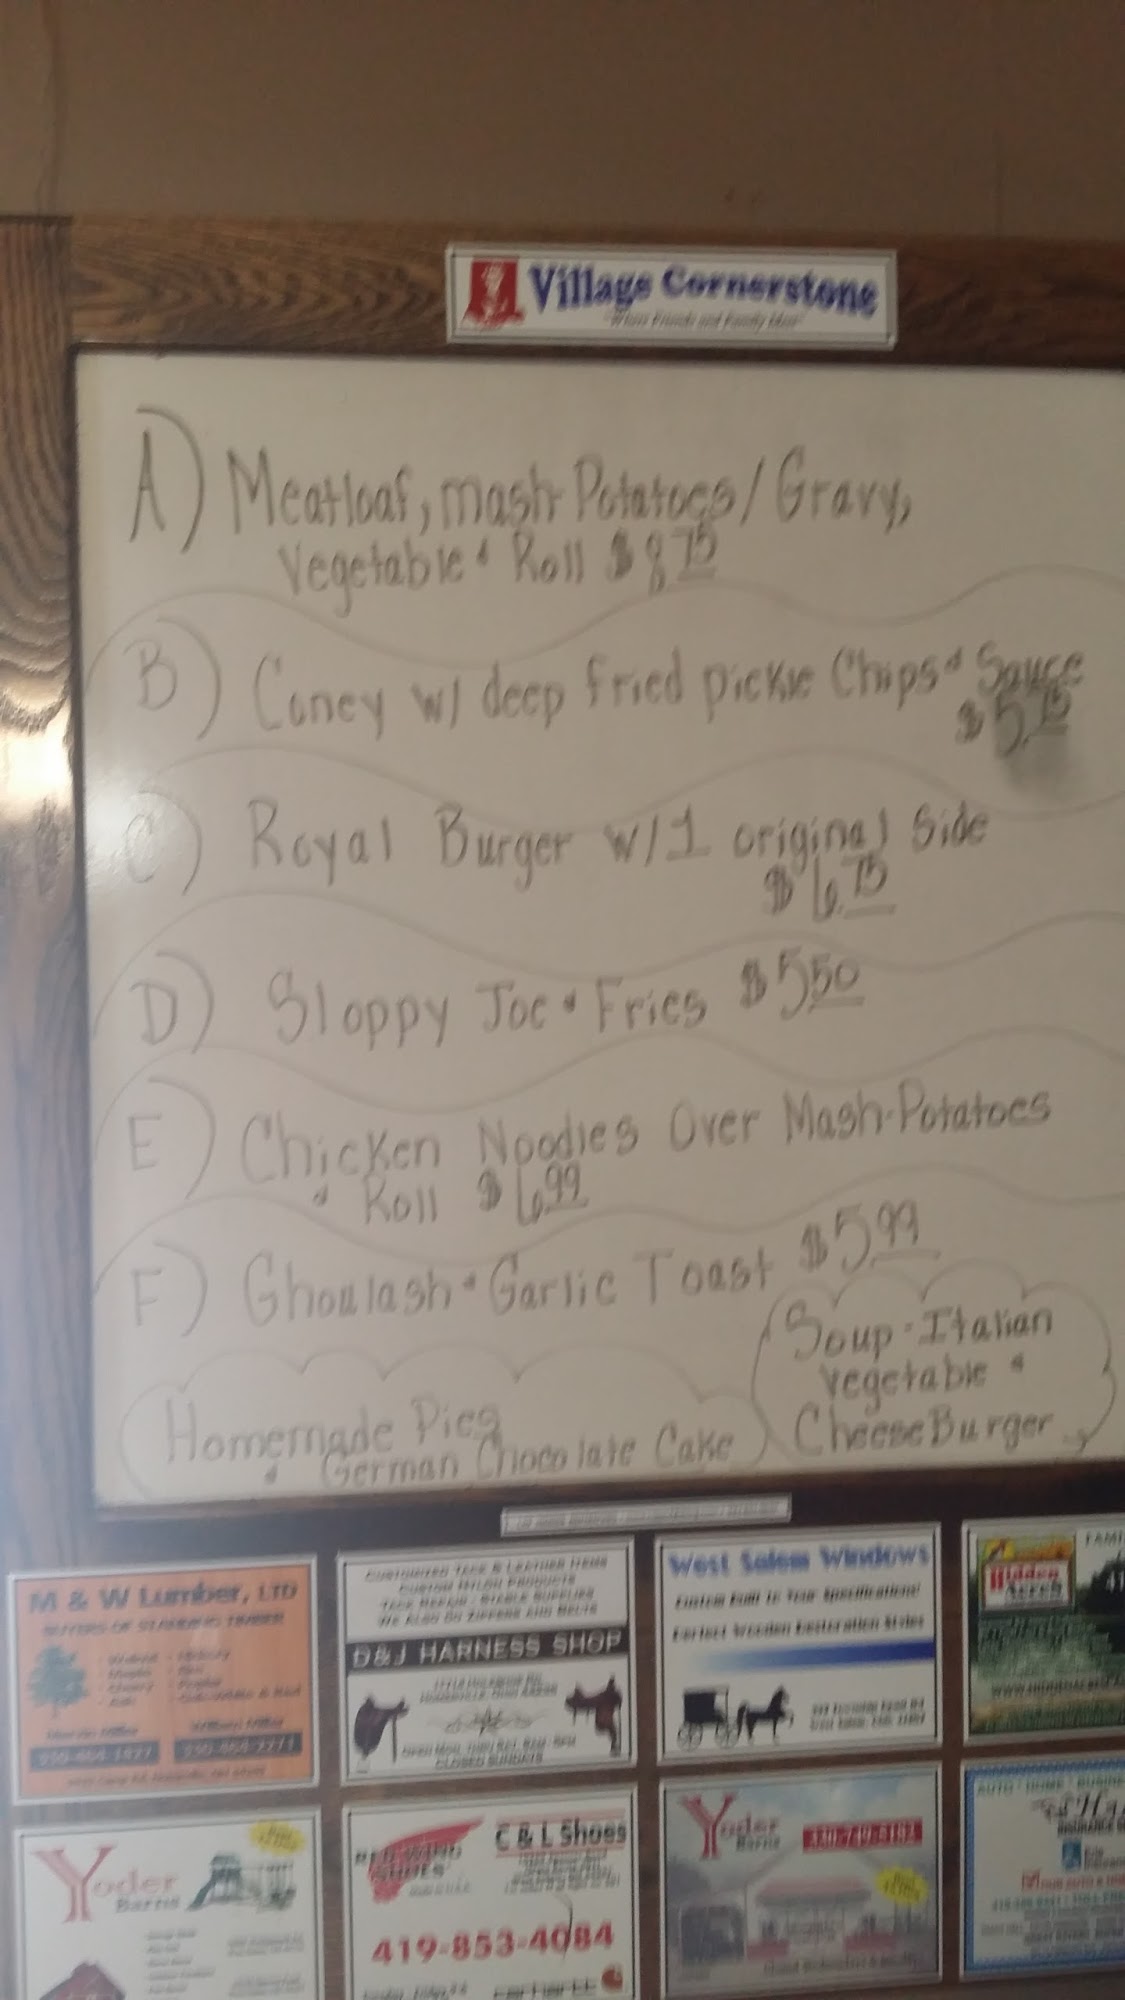 Village Cornerstone
"Where Friends and Family Meet"
A) Meatloaf, mash Potatoes/Gravy,
Vegetable & Roll $8.75
B) Coney w/ deep fried pickle Chips & Sauce
$5.75
C) Royal Burger w/1 original Side
$6.75
D) Sloppy Joe & Fries $5.50
E) Chicken Noodles Over Mash-Potatoes
& Roll $6.99
F) Ghoulash & Garlic Toast $5.99
Soup-Italian
Vegetable &
CheeseBurger
Homemade Pies
& German Chocolate Cake
M & W Lumber, LTD
BUYERS OF STANDING TIMBER
CUSTOMIZED TACK & LEATHER ITEMS
CUSTOM NYLON PRODUCTS
TACK REPAIR - STABLE SUPPLIES
WE ALSO DO ZIPPERS AND BELTS
D&J HARNESS SHOP
CLOSED SUNDAYS
West Salem Windows
Custom Built to Your Specifications!
Perfect Wooden Restoration Styles
Hidden
Acres
Yoder
Barns
RED WING
SHOES
C & L Shoes
419-853-4084
Yoder
Barns
330-749-8182
AUTO HOME BUSINESS
INSURANCE